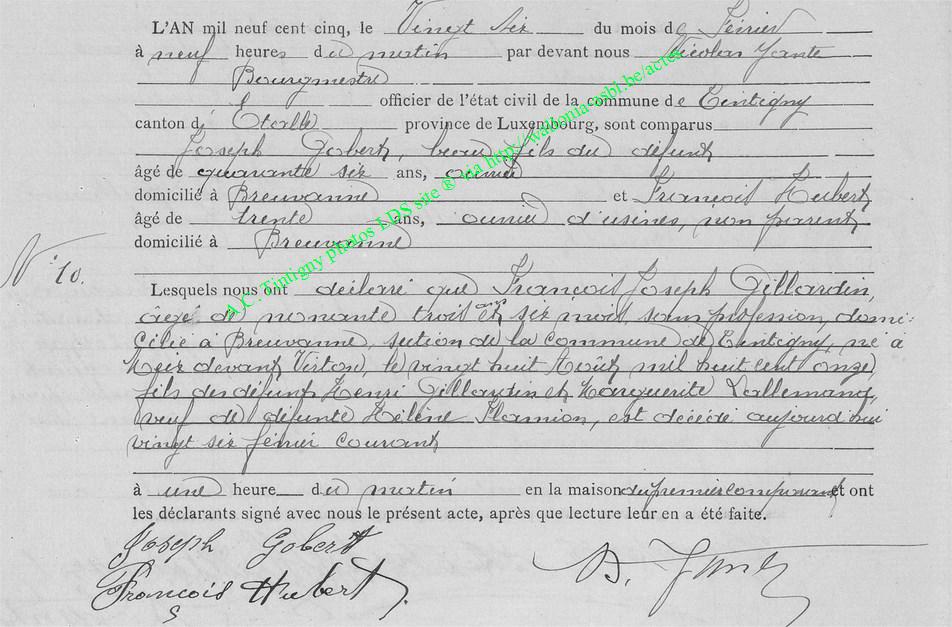 L'AN mil neuf cent cinq, le Vingt six du mois de Février
à neuf heures du matin par devant nous Nicolas
Bourgmestre
officier de l'état civil de la commune de Tintigny
canton d'Etalle province de Luxembourg, sont comparus
Joseph Gobert, beau fils du défunt
âgé de quarante six ans, ouvrier
domicilié à Breuvanne et François Hubert,
âgé de trente ans, ouvrier d'usines, non parent
domicilié à Breuvanne
N° 10.
Lesquels nous ont déclaré que François Joseph Gillardin,
âgé de nonante trois ans et six mois, sans profession, domi-
cilié à Breuvanne, section de la commune de Tintigny, né à
Meix devant Virton, le vingt huit Août mil huit cent onze,
fils des défunts Henri Gillardin et Marguerite Lallemand,
veuf de défunte Hélène Flamion, est décédé aujourd'hui
vingt six février courant
à une heure du matin en la maison du premier comparant et ont
les déclarants signé avec nous le présent acte, après que lecture leur en a été faite.
Joseph Gobert
François Hubert
A.C. Tintigny photos LDS site ® via http://walloniaasbl.be/actes